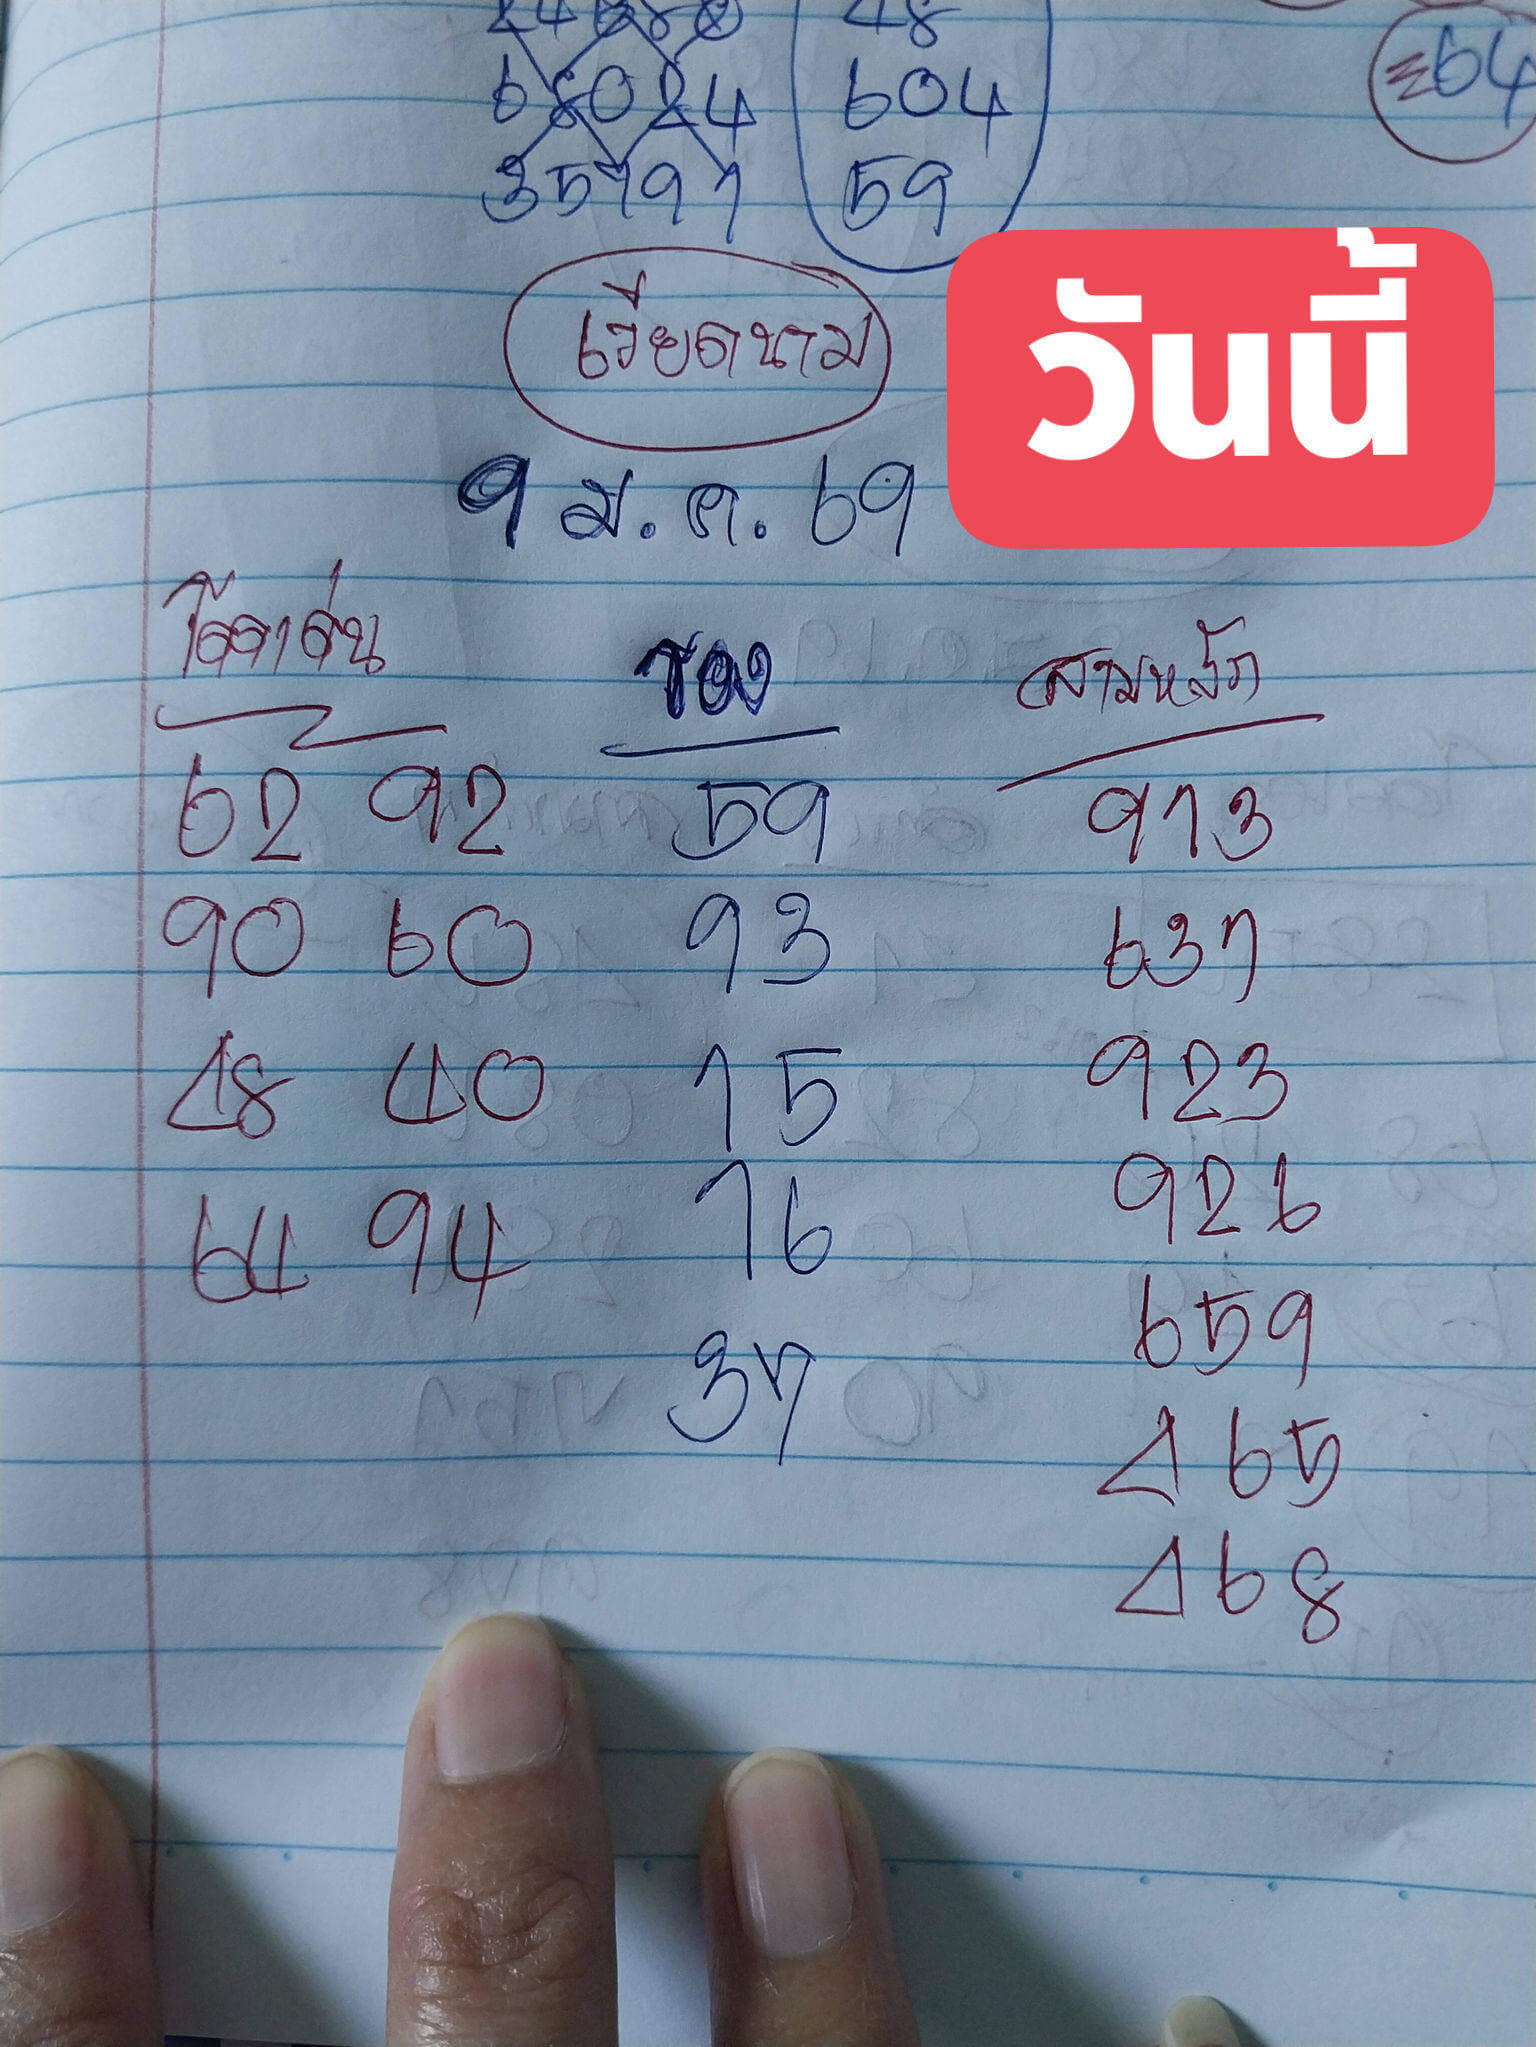 68024 604
35797 59
64
วันนี้
เวียดนาม
9 มี.ค. 69
โดดเด่น รอง สามหลัก
62 92 59 973
90 60 93 637
48 40 15 923
64 94 76 926
37 659
465
468